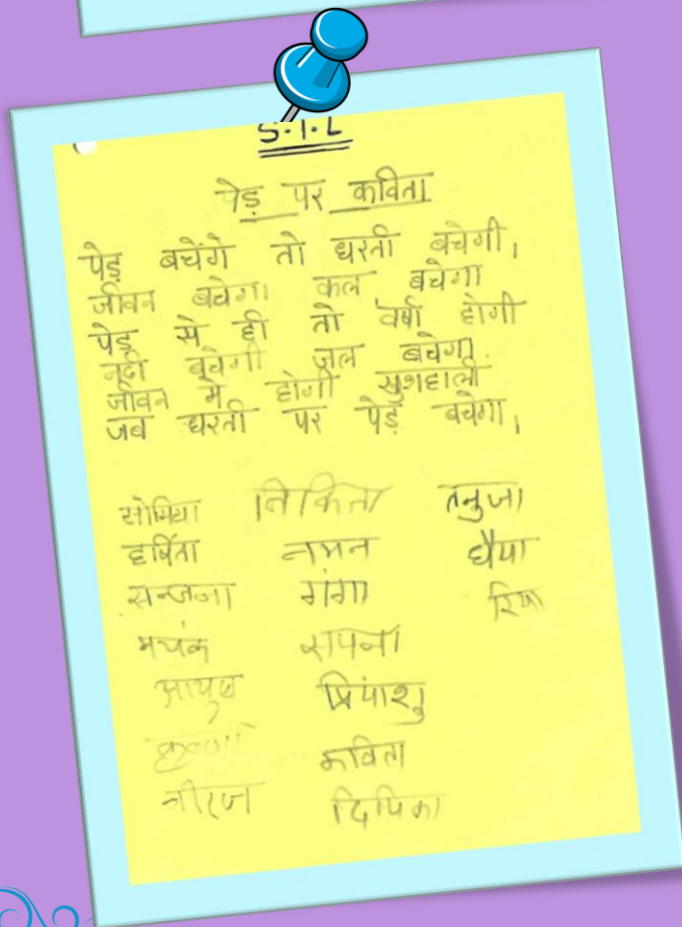 S.I.L
पेड़ पर कविता
पेड़ बचेंगे तो धरती बचेगी,
जीवन बचेगा कल बचेगा
पेड़ से ही तो वर्षा होगी
नदी बचेगी जल बचेगा
जीवन में होगी खुशहाली
जब धरती पर पेड़ बचेगा,
सोमिया निकिता तनुजा
हर्षिता नमन
सन्जना गंगा
मयंक सपना
आयुष प्रियांशु
कृष्णा कविता
नीरज दिपिका